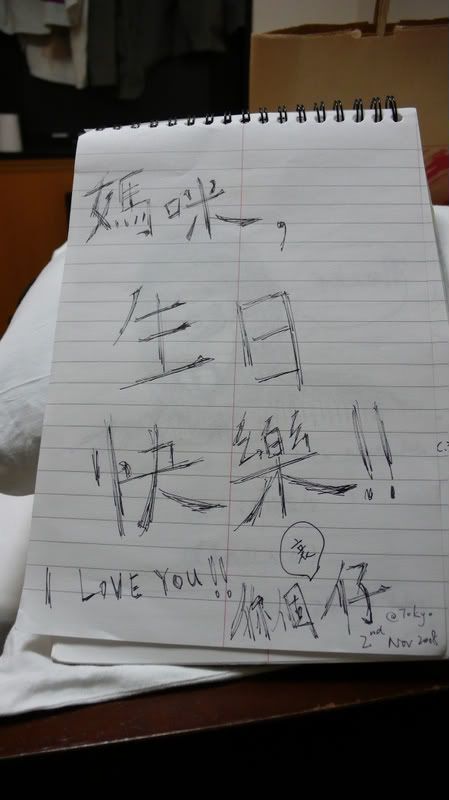 媽咪,
生日
快樂!!
I LOVE YOU!! 你個衰仔
@Tokyo
2nd Nov 2008